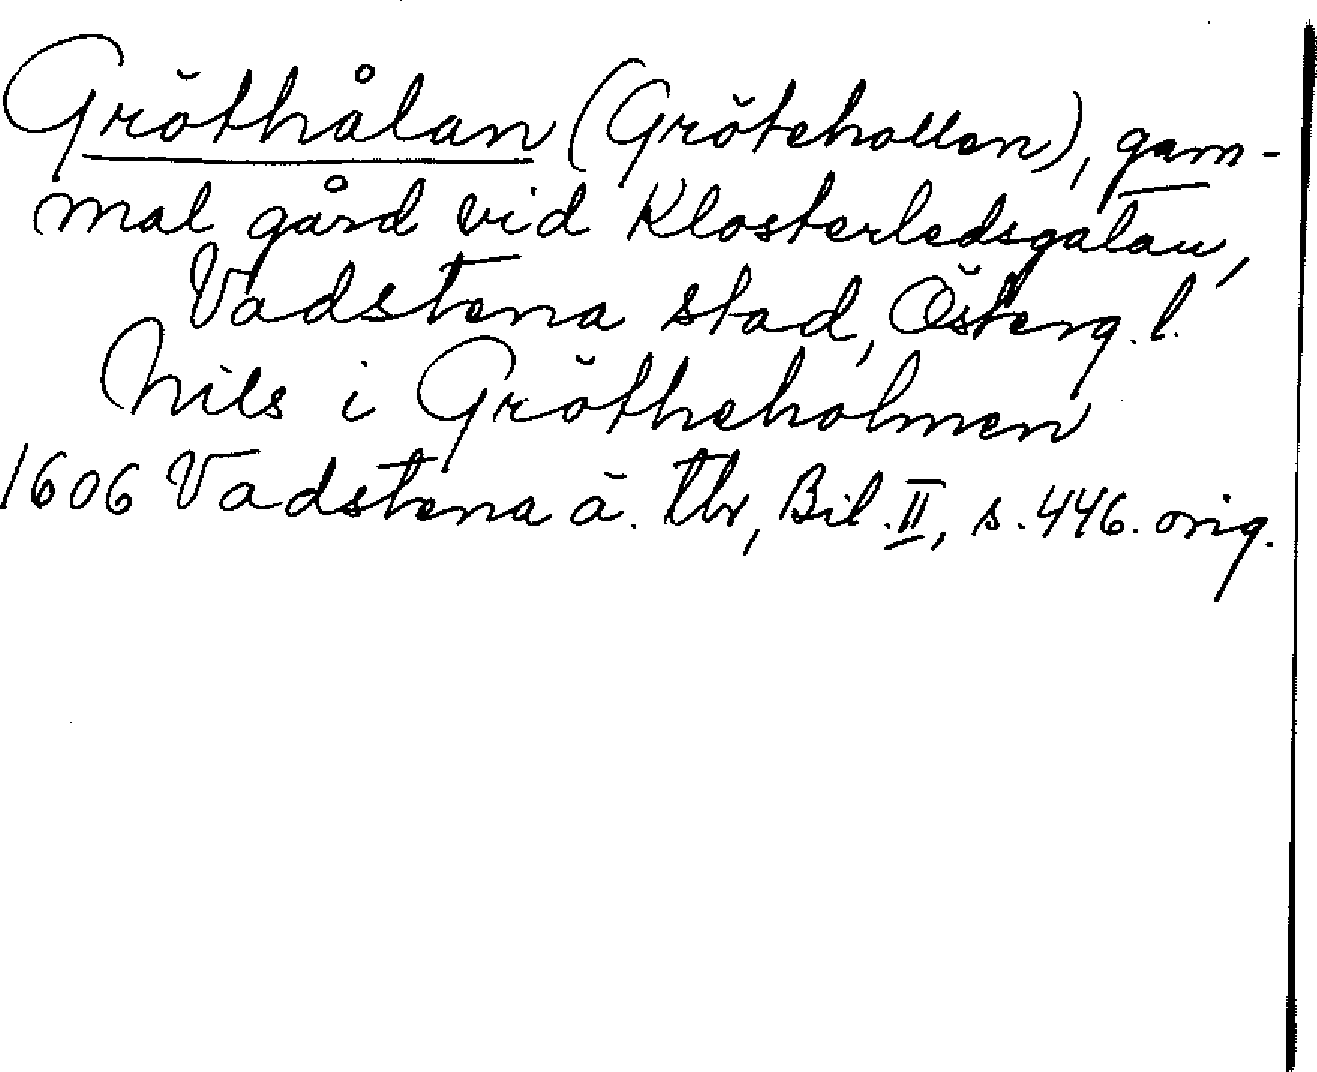 Gröthålan (Grötehollen), gam-
mal gård vid Klosterledsgatan,
Vadstena stad, Österg. l.
Nils i Grötheholmen
1606 Vadstena ä. tbr, Bil. II, s. 446. orig.